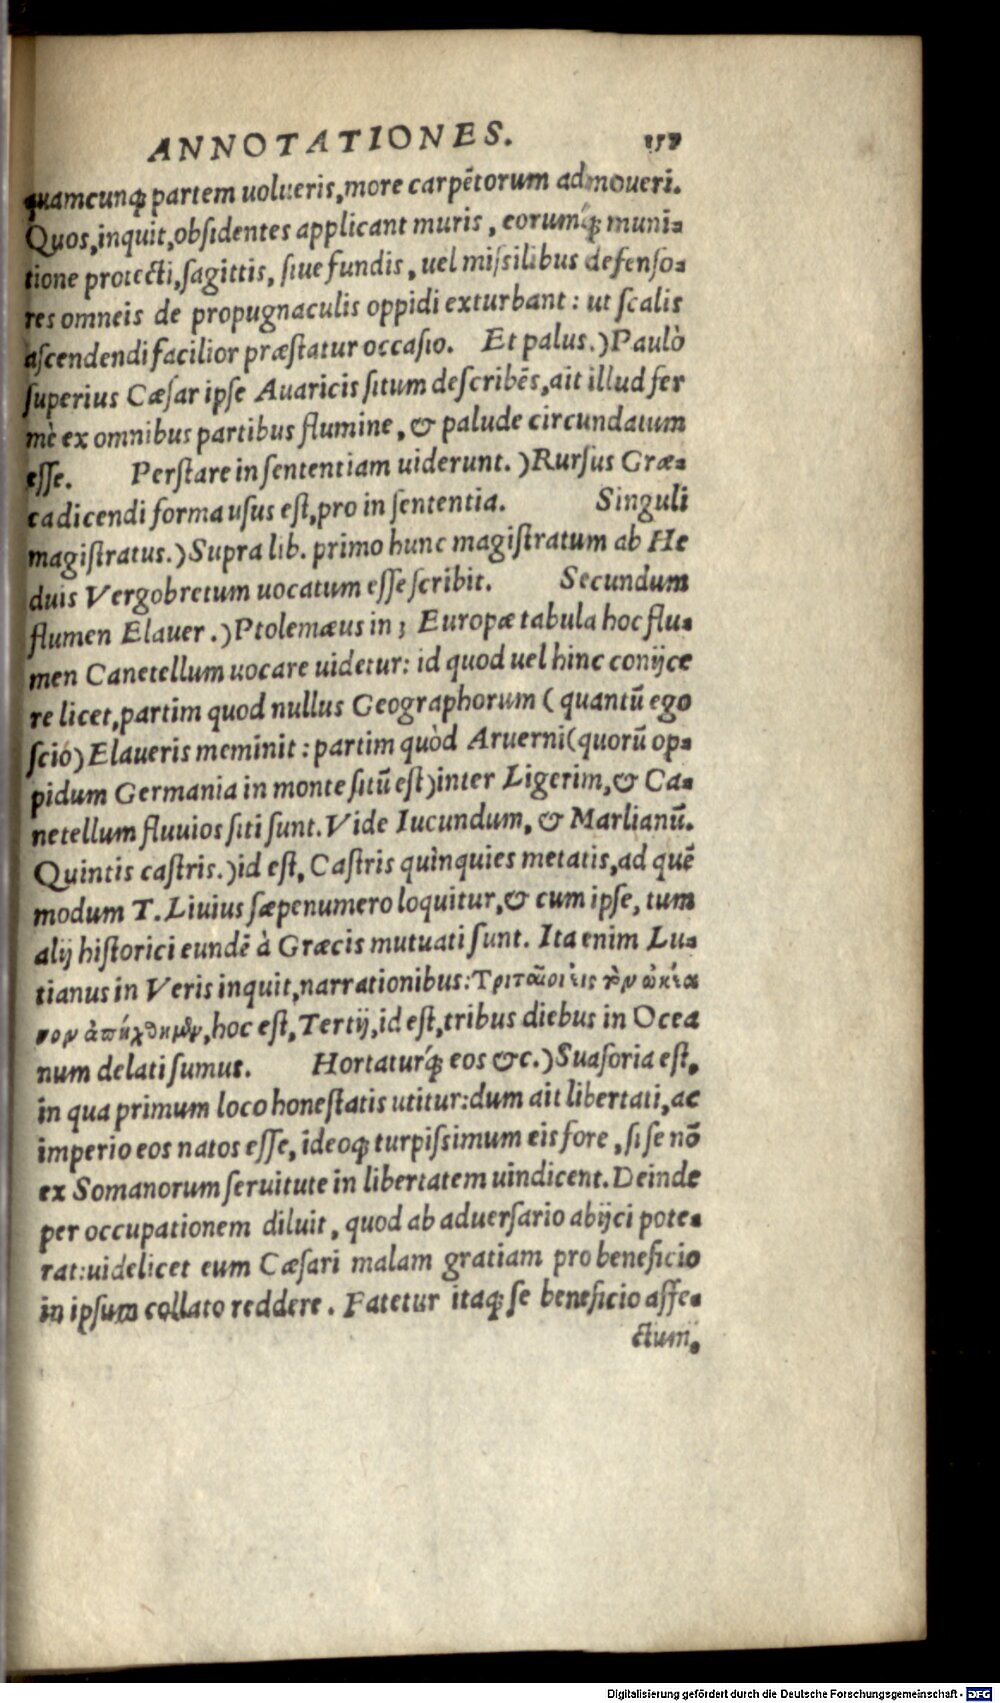 ANNOTATIONES. 157
quamcunq; partem uolueris, more carpẽtorum admoueri.
Quos, inquit, obsidentes applicant muris, eorumq́; muni-
tione protecti, sagittis, siue fundis, uel missilibus defenso-
res omneis de propugnaculis oppidi exturbant: ut scalis
ascendendi facilior præstatur occasio. Et palus.) Paulò
superius Cæsar ipse Auaricis situm describẽs, ait illud fer
mè ex omnibus partibus flumine, & palude circundatum
esse. Perstare in sententiam uiderunt.) Rursus Græ-
ca dicendi forma usus est, pro in sententia. Singuli
magistratus.) Supra lib. primo hunc magistratum ab He
duis Vergobretum uocatum esse scribit. Secundum
flumen Elauer.) Ptolemæus in 3 Europæ tabula hoc flu-
men Canetellum uocare uidetur: id quod uel hinc conijce
re licet, partim quod nullus Geographorum ( quantũ ego
scio) Elaueris meminit: partim quòd Aruerni (quorũ op-
pidum Germania in monte sitũ est) inter Ligerim, & Ca-
netellum fluuios siti sunt. Vide Iucundum, & Marlianũ.
Quintis castris.) id est, Castris quinquies metatis, ad quẽ
modum T. Liuius sæpenumero loquitur, & cum ipse, tum
alij historici eundẽ à Græcis mutuati sunt. Ita enim Lu-
tianus in Veris inquit, narrationibus: Τριταῖοι εἰς τὸν ὠκεα
νον ἀπήχθημεν, hoc est, Tertij, id est, tribus diebus in Ocea
num delati sumus. Hortaturq́; eos &c.) Suasoria est,
in qua primum loco honestatis utitur: dum ait libertati, ac
imperio eos natos esse, ideoq; turpissimum eis fore, si se nõ
ex Somanorum seruitute in libertatem uindicent. Deinde
per occupationem diluit, quod ab aduersario abijci pote-
rat: uidelicet eum Cæsari malam gratiam pro beneficio
in ipsum collato reddere. Fatetur itaq; se beneficio affe-
ctum,
Digitalisierung gefördert durch die Deutsche Forschungsgemeinschaft - DFG